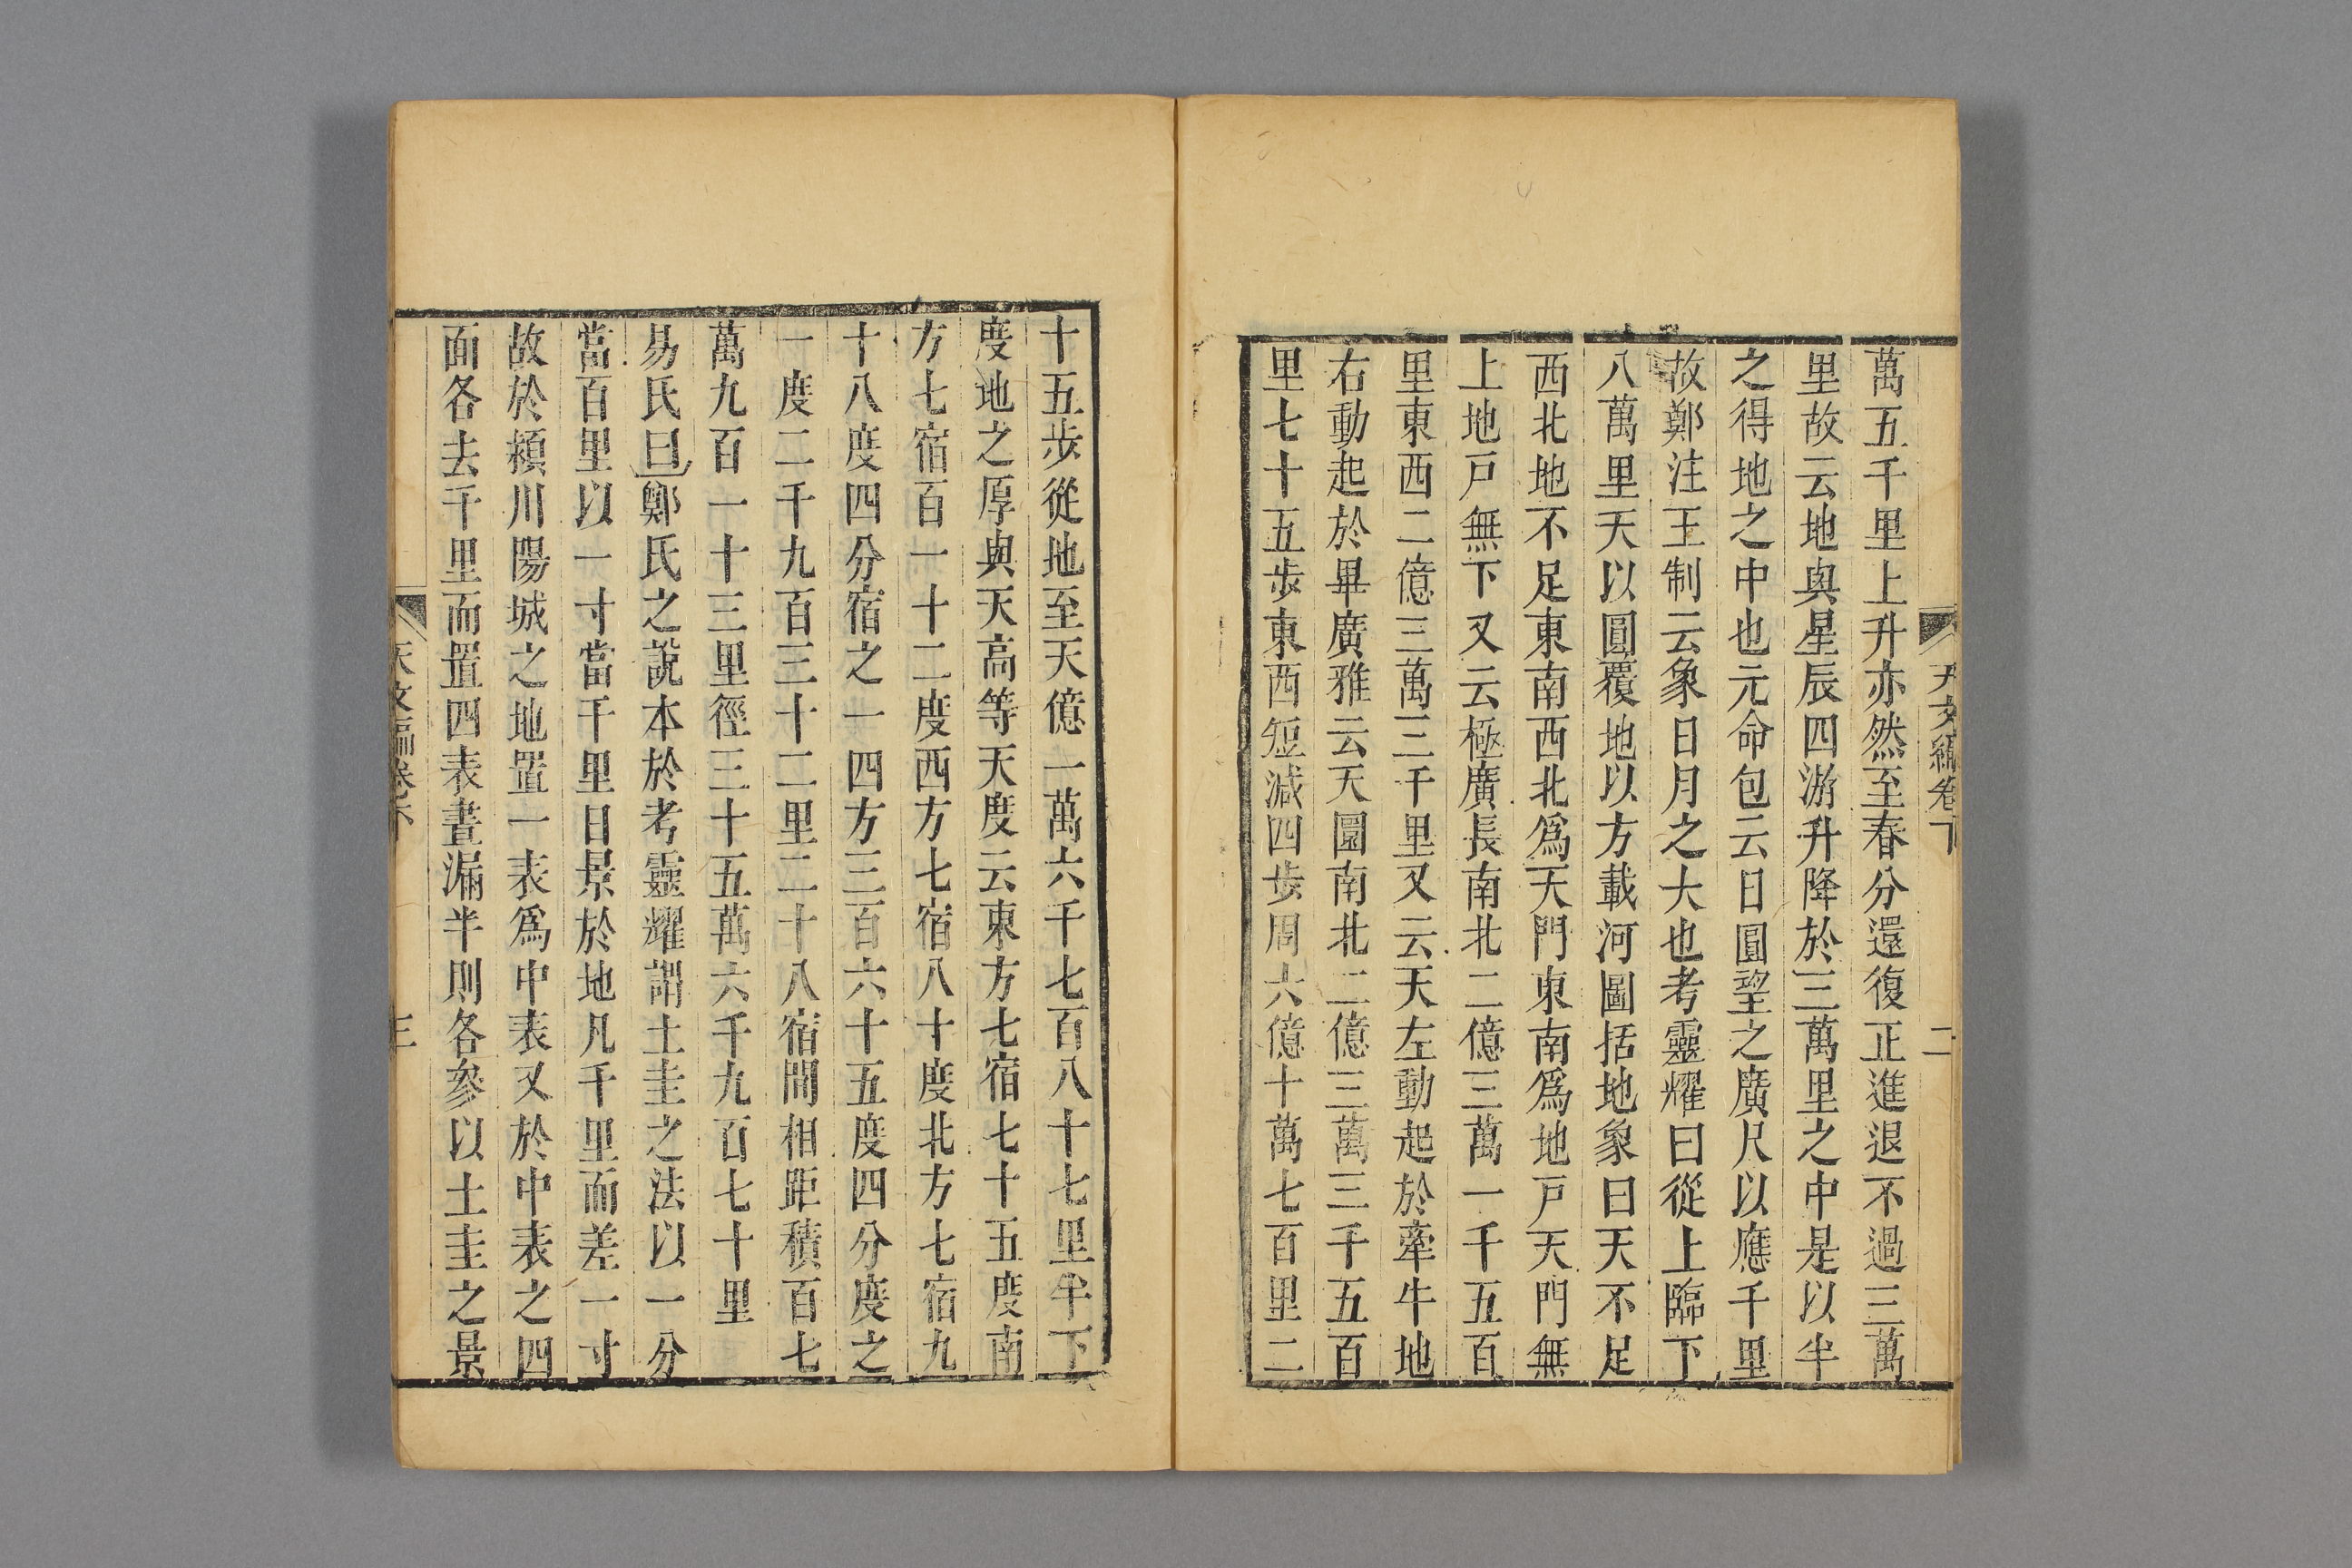 天文編卷下
二
萬五千里上升亦然至春分還復正進退不過三萬
里故云地與星辰四游升降於三萬里之中是以半
之得地之中也元命包云日圓望之廣尺以應千里
故鄭注王制云象日月之大也考靈耀曰從上臨下
八萬里天以圓覆地以方載河圖括地象曰天不足
西北地不足東南西北爲天門東南爲地戸天門無
上地戸無下又云極廣長南北二億三萬一千五百
里東西二億三萬三千里又云天左動起於牽牛地
右動起於畢廣雅云天圜南北二億三萬三千五百
里七十五步東西短減四步周六億十萬七百里二
十五步從地至天億一萬六千七百八十七里半下
度地之厚與天高等天度云東方七宿七十五度南
方七宿百一十二度西方七宿八十度北方七宿九
十八度四分宿之一四方三百六十五度四分度之
一度二千九百三十二里二十八宿間相距積百七
萬九百一十三里徑三十五萬六千九百七十里
易氏曰鄭氏之說本於考靈耀謂土圭之法以一分
當百里以一寸當千里日景於地凡千里而差一寸
故於潁川陽城之地置一表爲中表又於中表之四
面各去千里而置四表晝漏半則各參以土圭之景
天文編卷下
三